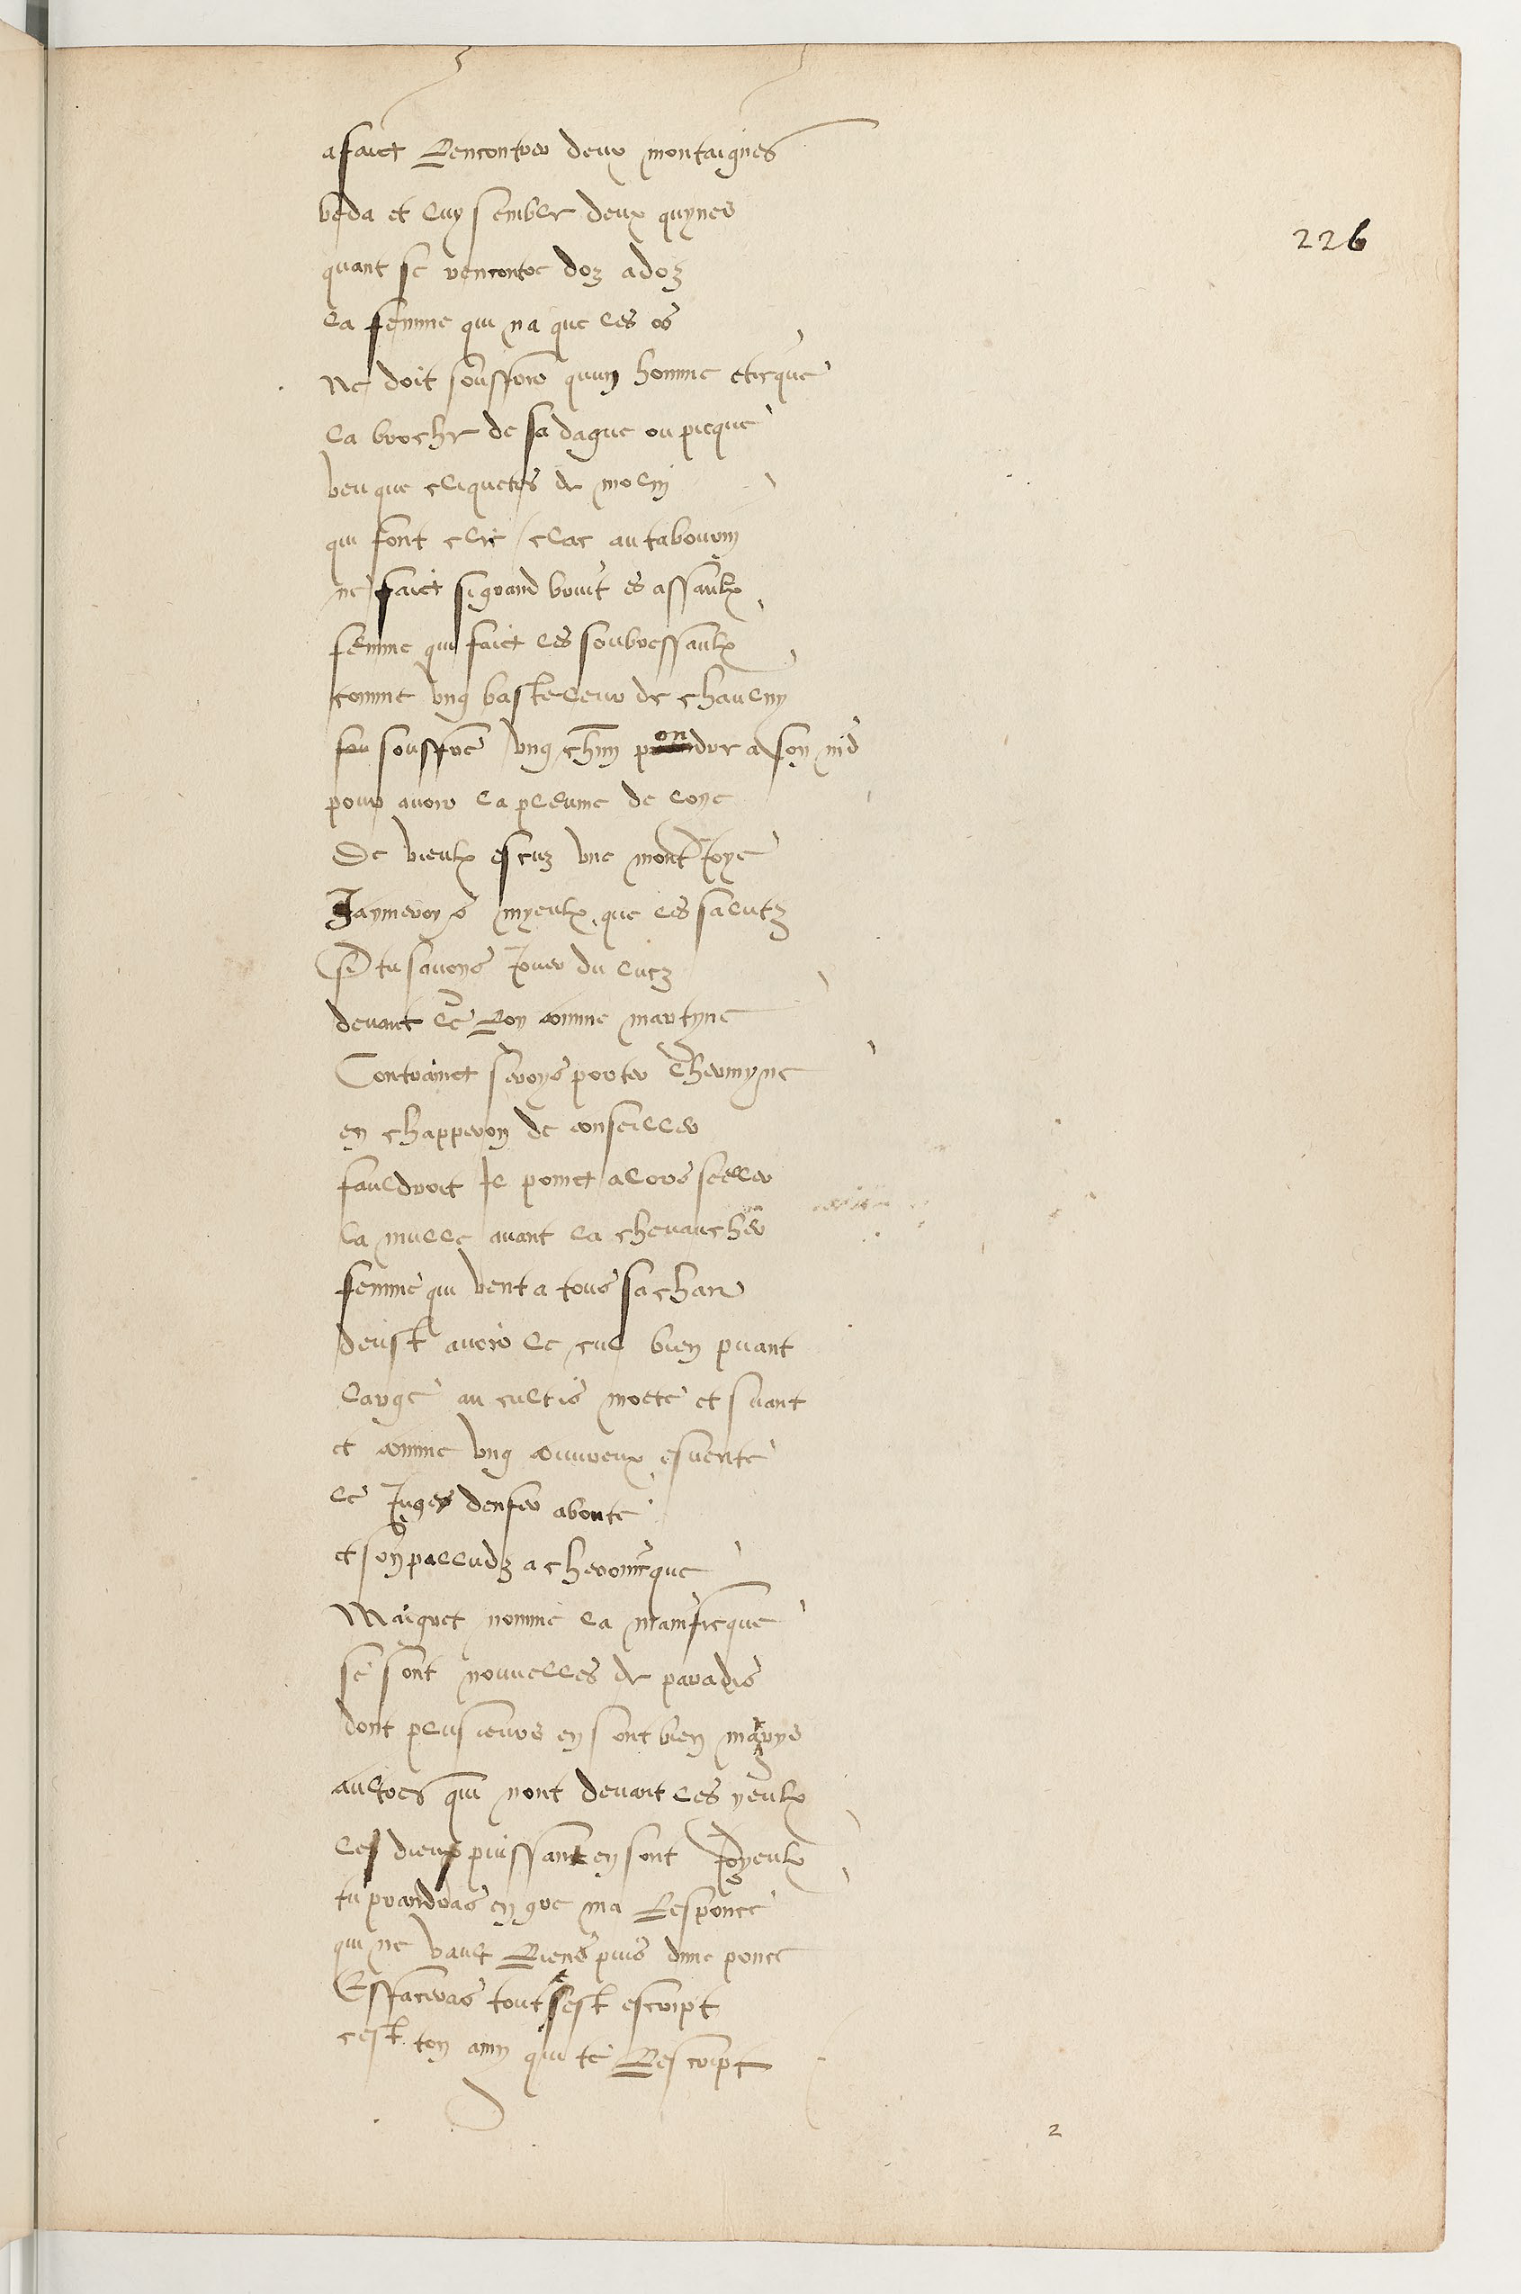 a faict Rencontrer deux montaignes
beda et luy sembler deux quynes
quant se rencontre doz a doz
la femme qui na que les os
Ne doit souffrir quun homme eticque
la broche de sa dague ou picque
veu que cliquetes de molin
qui font clic clac au tabourin
ne faict si grand bruit es assaulx
femme qui faict les soubressaulx
comme ung basteleur de chaulny
souffre ung chin pondre a son nid
pour avoir la pleume de loye
De vieulx escuz une mont Joye
Jaymeroys myeulx que les salutz
Si tu savoys Jouer du lucz
devant le Roy comme martyne
Contrainct seroys porter Lhermyne
en chapperon de conseiller
fauldroit Il poinct alors seller
la mulle avant la chevaucher
femme qui vent a tous sa chair
deust avoir le cul bien puant
large au cultis moete et suant
et comme ung couvreux esvente
le Juges denfer abonte
et son palludz acheronicque
Maigret nomme la mainficque
se sont nouvelles de paradis
dont plusieurs en sont bien marrys
aultres qui nont devant les yeulx
les dieux puissant en sont Joyeulx
tu prandras en gre ma Responce
qui ne vault Riens puis dune ponce
Effaceras tout sest escript
cest ton amy qui te Rescript
226
2